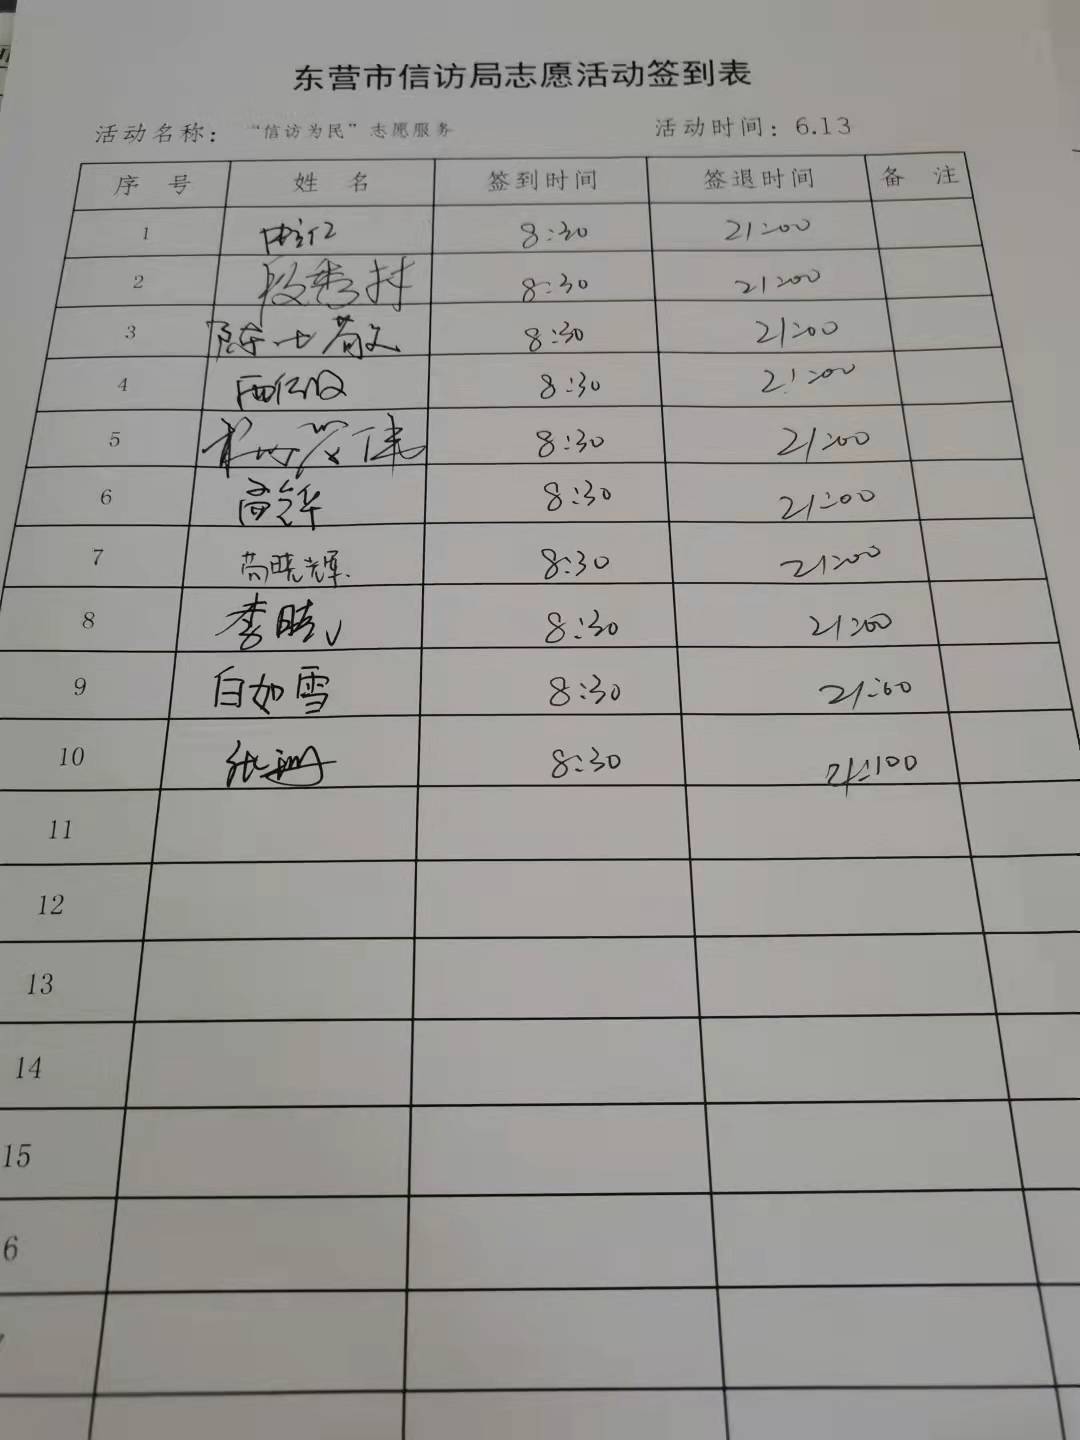 东营市信访局志愿活动签到表
活动名称： “信访为民”志愿服务 活动时间：6.13
序 号 姓 名 签到时间 签退时间 备 注
1 8:30 21:00
2 段秀村 8:30 21:00
3 8:30 21:00
4 8:30 21:00
5 8:30 21:00
6 8:30 21:00
7 尚晓辉 8:30 21:00
8 李晓 8:30 21:00
9 白如雪 8:30 21:00
10 张珊 8:30 21:00
11
12
13
14
15
6